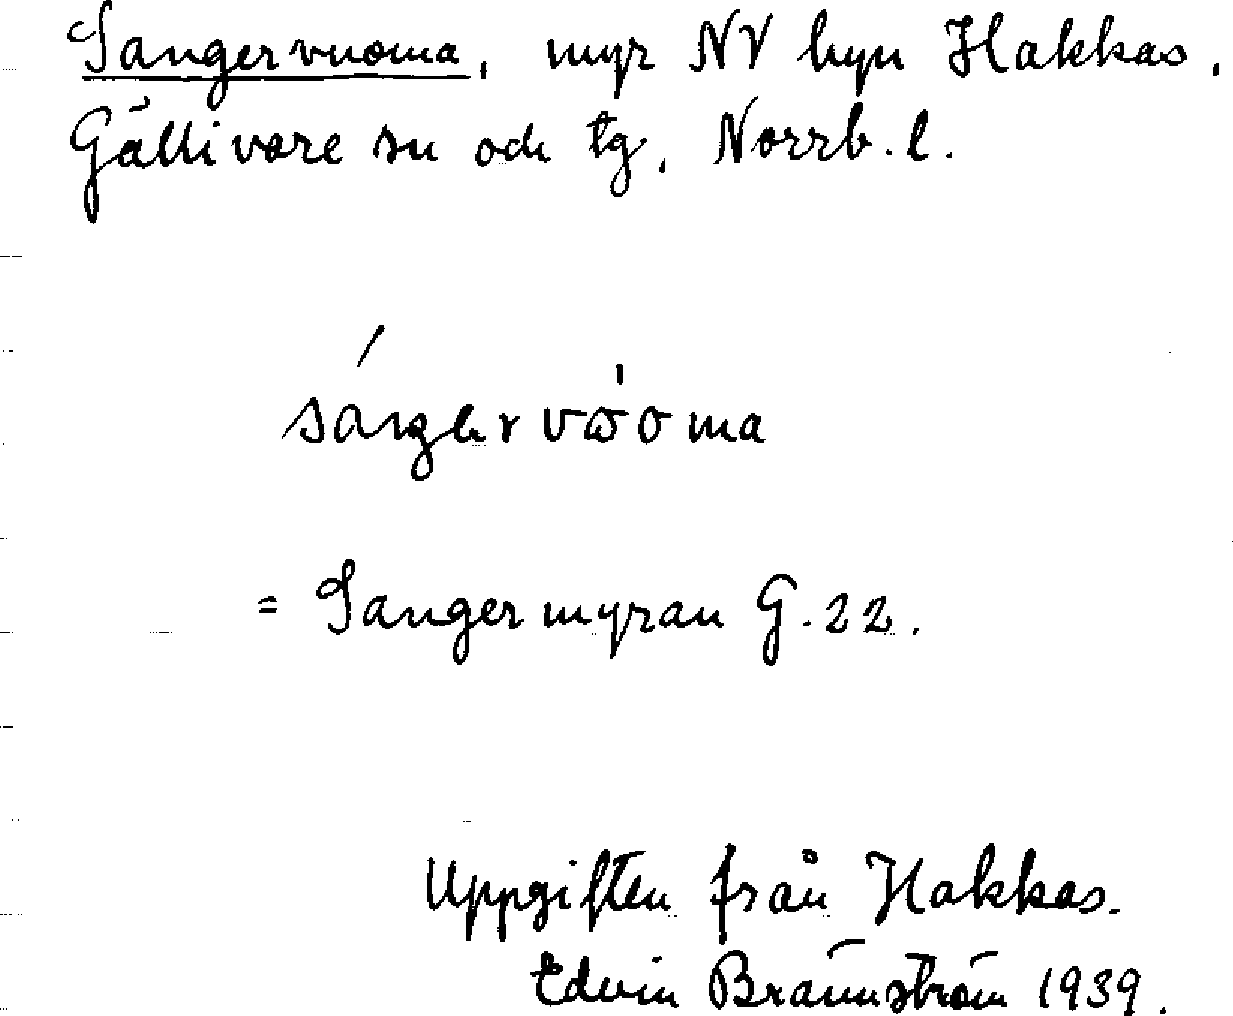 Sangervuoma, myr NV byn Hakkas,
Gällivare sn och tg, Norrb. l.
= Sangermyran G. 22.
Uppgiften från Hakkas.
Edvin Brännström 1939.